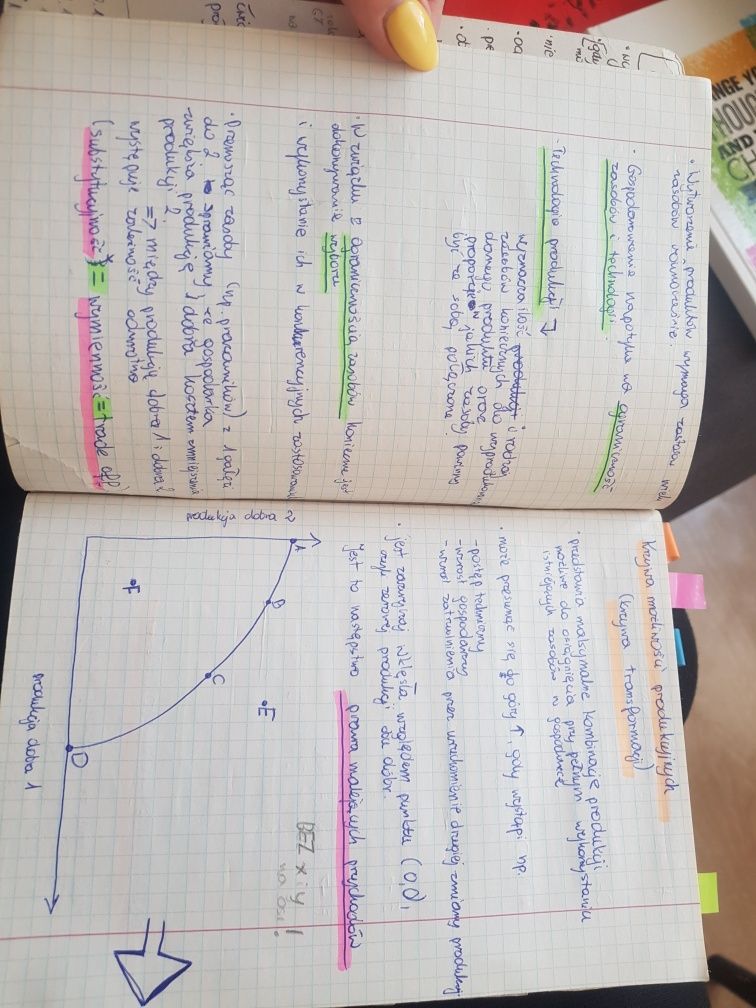 • Wytworzenie produktów wymaga zestawu wielu
zasobów równocześnie.
• Gospodarowanie napotyka na ograniczoność
zasobów i technologii.
• Technologia produkcji ↓
wyznacza ilość i rodzaj
zasobów koniecznych do wyprodukowania
danego produktu oraz
proporcje w jakich zasoby powinny
być ze sobą połączone.
• W związku z ograniczonością zasobów konieczne jest
dokonywanie wyboru
i wykorzystanie ich w konkurencyjnych zastosowaniach
• Przenosząc zasoby (np. pracowników) z 1 gałęzi
do 2 sprawiamy, że gospodarka
zwiększa produkcję 1 dobra kosztem zmniejszenia
produkcji 2
=> między produkcją dobra 1 i dobra 2
występuje zależność odwrotna
(substytucyjność* = wymienność = trade off)
Krzywa możliwości produkcyjnych
(krzywa transformacji)
• przedstawia maksymalne kombinacje produkcji
możliwe do osiągnięcia przy pełnym wykorzystaniu
istniejących zasobów w gospodarce
• może przesuwać się do góry ↑, gdy wystąpi np.
- postęp techniczny
- wzrost gospodarczy
- wzrost zatrudnienia przez uruchomienie drugiej zmiany produkcji
• jest zazwyczaj wklęsła względem punktu (0,0),
czyli zerowej produkcji obu dóbr.
Jest to następstwo prawa malejących przychodów
BEZ x i y
na osi!
produkcja dobra 2
A
B
C
D
E
F
produkcja dobra 1